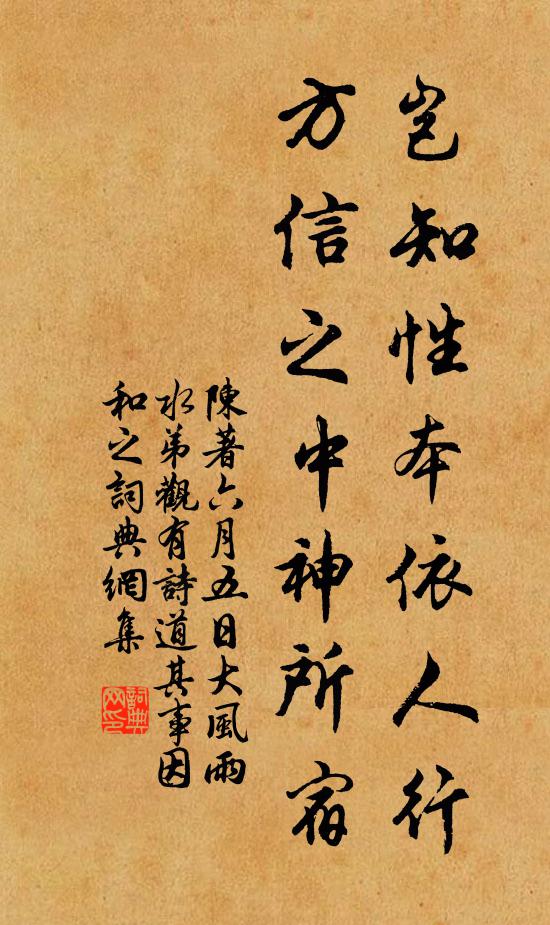 豈知性本依人行
方信之中神所宿
陳著六月五日大風雨
水弟觀有詩道其事因
和之詞典網集
詞典
网印